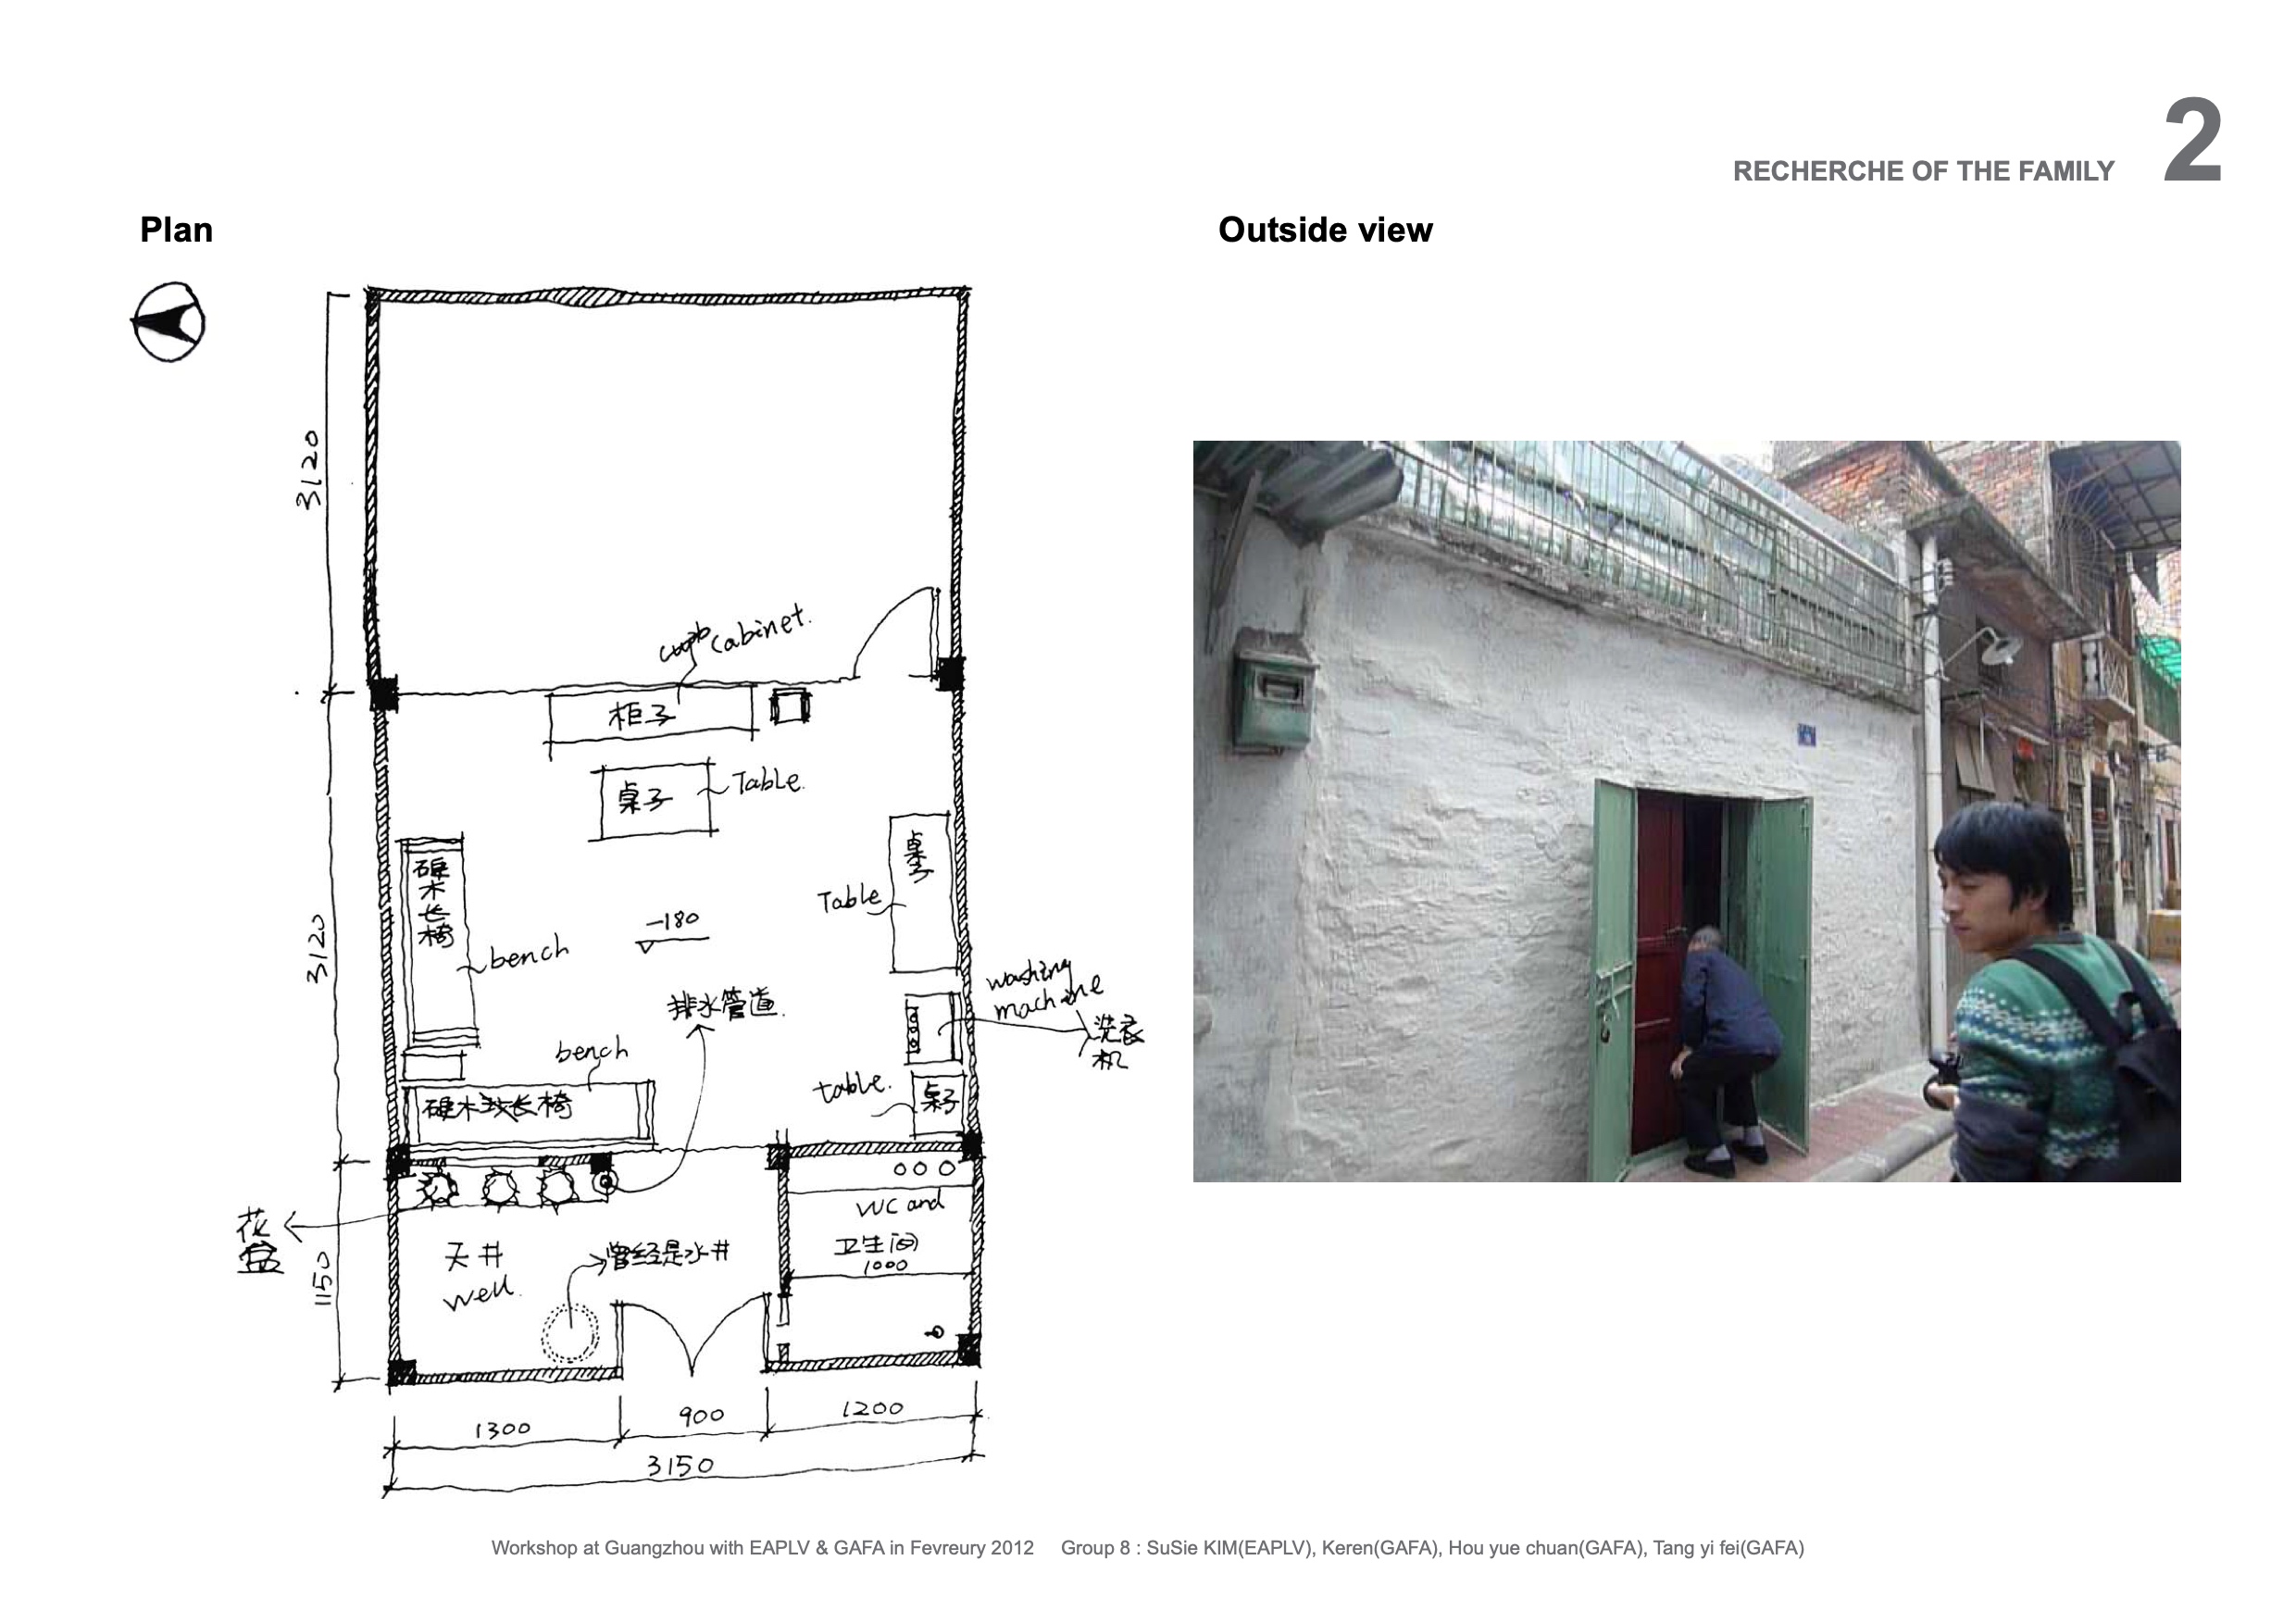 RECHERCHE OF THE FAMILY 2
Plan
Outside view
3120
cabinet.
柜子
桌子
Table.
硬木长椅
bench
桌子
Table
-180
3120
washing
machine
洗衣
机
排水管道.
bench
硬木长椅
table.
桌子
WC and
卫生间
1000
花
盆
天井
well.
曾经是水井
1150
1300
900
1200
3150
Workshop at Guangzhou with EAPLV & GAFA in Fevreury 2012 Group 8 : SuSie KIM(EAPLV), Keren(GAFA), Hou yue chuan(GAFA), Tang yi fei(GAFA)